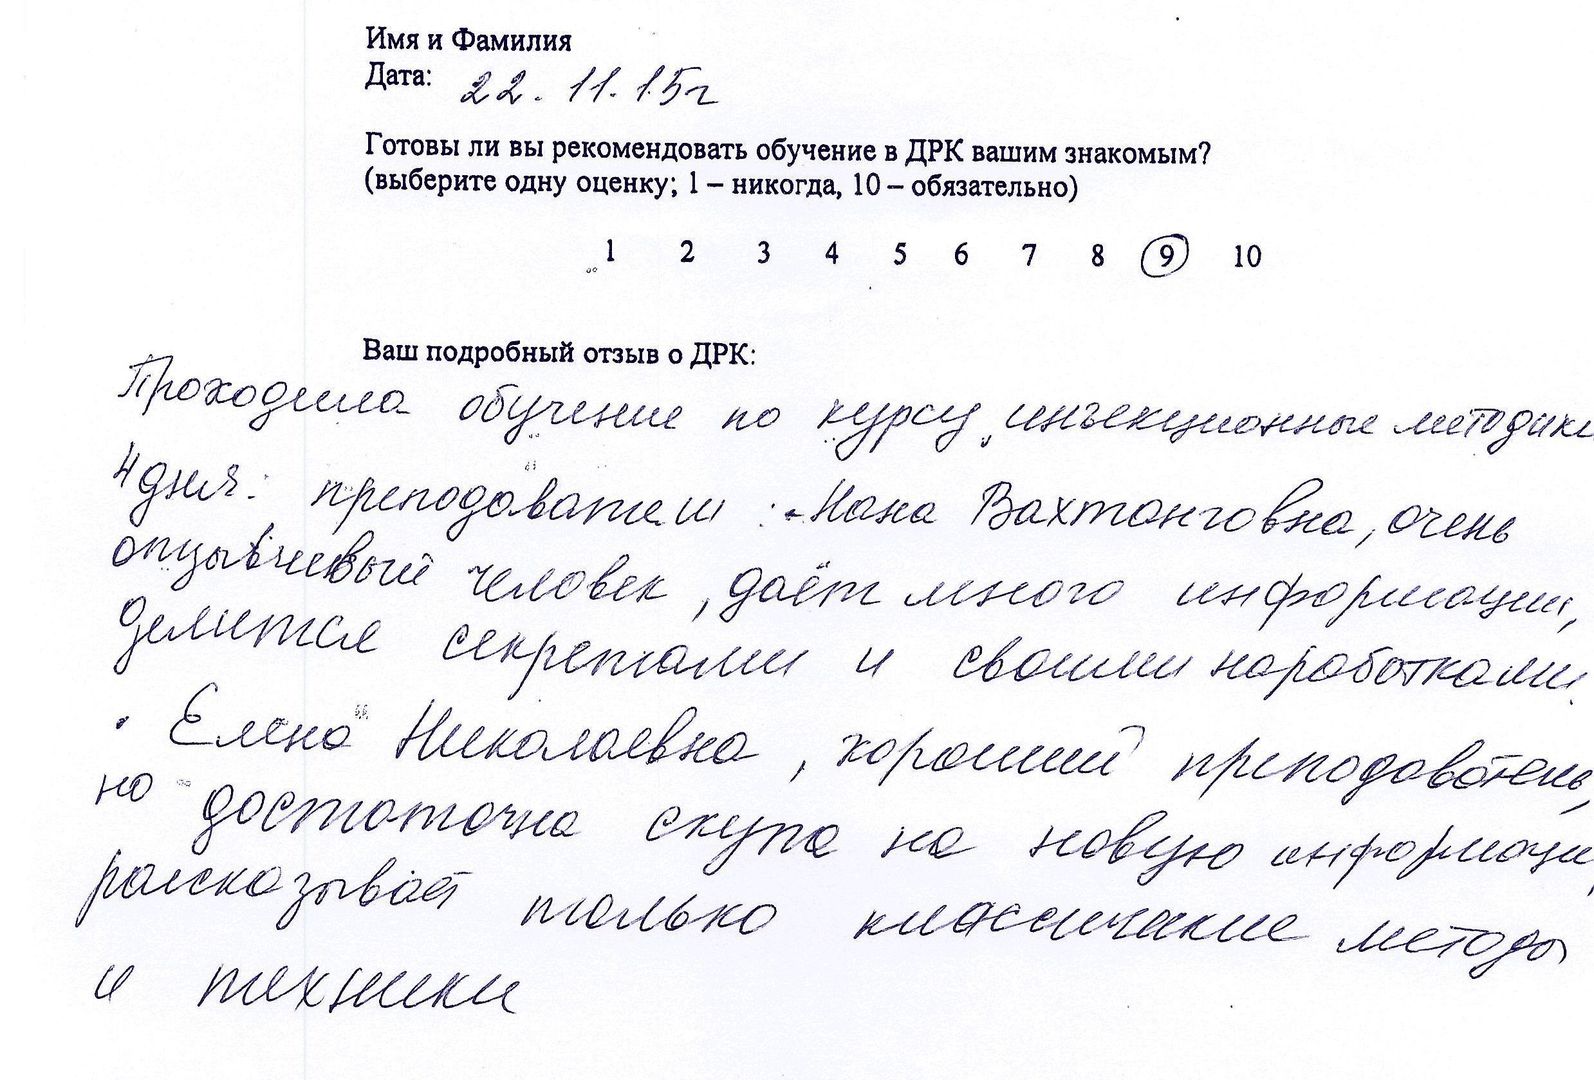 Имя и Фамилия
Дата: 22.11.15г
Готовы ли вы рекомендовать обучение в ДРК вашим знакомым?
(выберите одну оценку; 1 – никогда, 10 – обязательно)
1 2 3 4 5 6 7 8 9 10
Ваш подробный отзыв о ДРК:
Проходила обучение по курсу „инъекционные методики
4 дня. преподаватели: - Нана Вахтанговна, очень
отзывчивый человек, даёт много информации,
делится секретами и своими наработками.
· Елена Николаевна, хороший преподаватель,
но достаточна скупа на новую информаци
рассказывает только классические методы
и техники